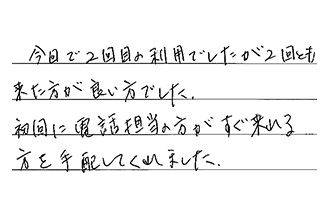 今回で2回目の利用でしたが2回とも
来た方が良い方でした.
初回に電話担当の方がすぐ来れる
方を手配してくれました.